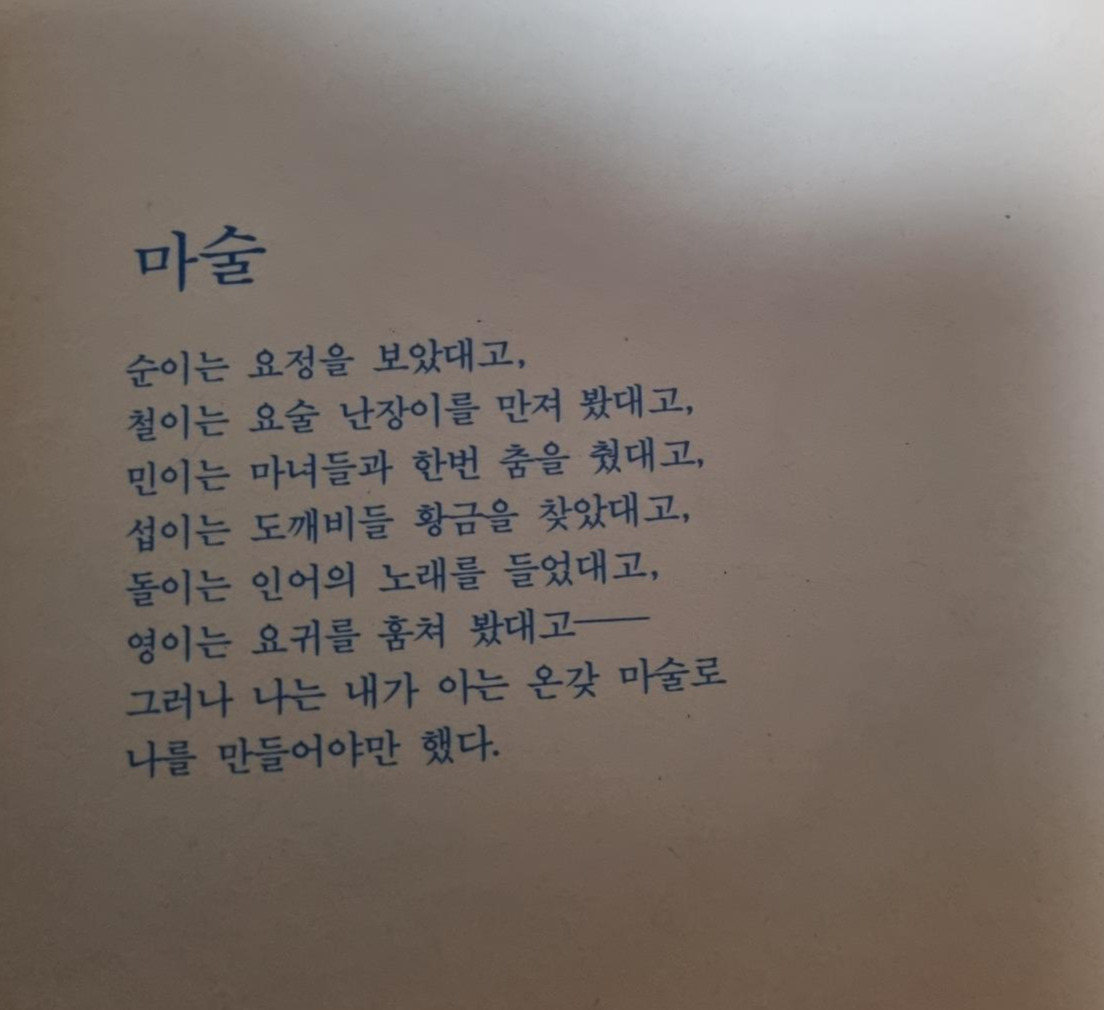 마술
순이는 요정을 보았대고,
철이는 요술 난장이를 만져 봤대고,
민이는 마녀들과 한번 춤을 췄대고,
섭이는 도깨비들 황금을 찾았대고,
돌이는 인어의 노래를 들었대고,
영이는 요귀를 훔쳐 봤대고——
그러나 나는 내가 아는 온갖 마술로
나를 만들어야만 했다.